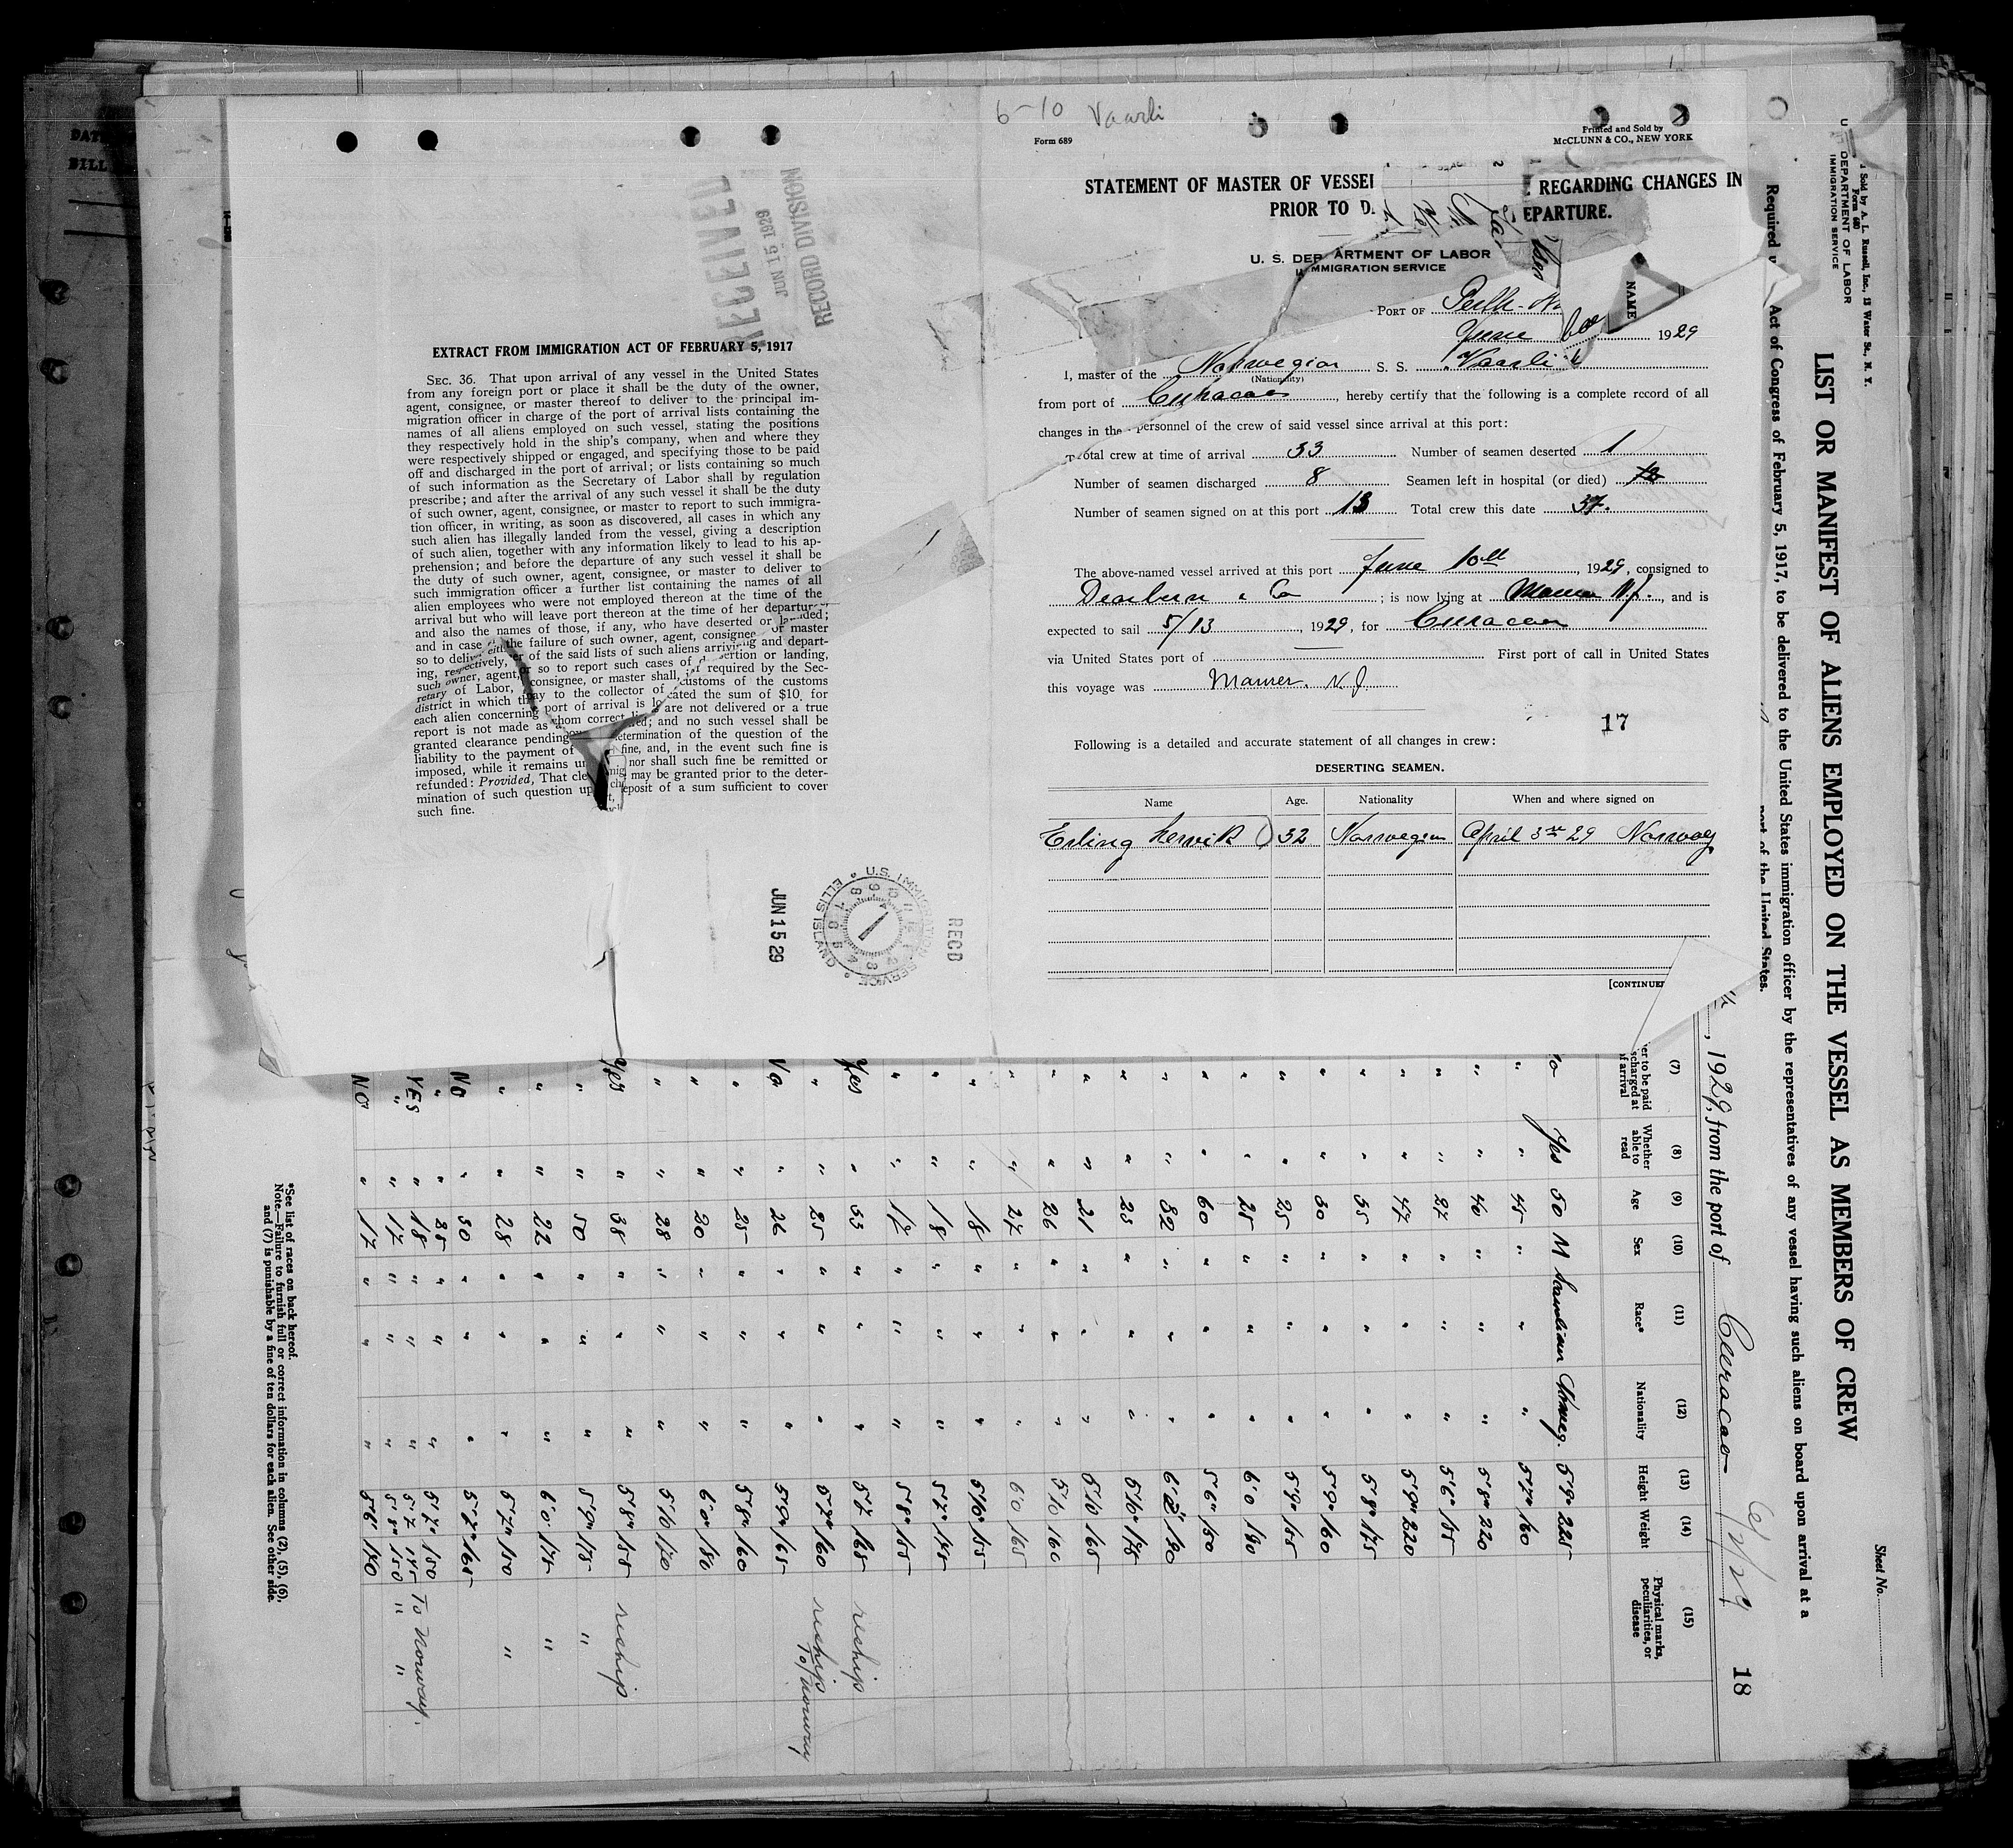 6-10 Vaarli
Form 689
Printed and Sold by
McCLUNN & CO., NEW YORK
STATEMENT OF MASTER OF VESSEL REGARDING CHANGES IN
PRIOR TO DEPARTURE.
U. S. DEPARTMENT OF LABOR
IMMIGRATION SERVICE
NAME
PORT OF Perth
June 1929
I, master of the Norwegian S. S. Vaarli
(Nationality)
from port of Curacao, hereby certify that the following is a complete record of all
changes in the personnel of the crew of said vessel since arrival at this port:
Total crew at time of arrival 33 Number of seamen deserted 1
Number of seamen discharged 8 Seamen left in hospital (or died)
Number of seamen signed on at this port 13 Total crew this date 37.
The above-named vessel arrived at this port June 10th, 1929, consigned to
Dearborn & Co; is now lying at Maurer N.J., and is
expected to sail 5/13, 1929, for Curacao
via United States port of First port of call in United States
this voyage was Maurer. N.J.
17
Following is a detailed and accurate statement of all changes in crew:
DESERTING SEAMEN.
Name Age. Nationality When and where signed on
Erling 32 Norwegian April 3rd 29 Norway
[CONTINUED
RECEIVED
JUN 15 1929
RECORD DIVISION
EXTRACT FROM IMMIGRATION ACT OF FEBRUARY 5, 1917
SEC. 36. That upon arrival of any vessel in the United States
from any foreign port or place it shall be the duty of the owner,
agent, consignee, or master thereof to deliver to the principal im-
migration officer in charge of the port of arrival lists containing the
names of all aliens employed on such vessel, stating the positions
they respectively hold in the ship's company, when and where they
were respectively shipped or engaged, and specifying those to be paid
off and discharged in the port of arrival; or lists containing so much
of such information as the Secretary of Labor shall by regulation
prescribe; and after the arrival of any such vessel it shall be the duty
of such owner, agent, consignee, or master to report to such immigra-
tion officer, in writing, as soon as discovered, all cases in which any
such alien has illegally landed from the vessel, giving a description
of such alien, together with any information likely to lead to his ap-
prehension; and before the departure of any such vessel it shall be
the duty of such owner, agent, consignee, or master to deliver to
such immigration officer a further list containing the names of all
alien employees who were not employed thereon at the time of the
arrival but who will leave port thereon at the time of her departure,
and also the names of those, if any, who have deserted or landed;
and in case of the failure of such owner, agent, consignee or master
so to deliver either of the said lists of such aliens arriving and depart-
ing, respectively, or so to report such cases of desertion or landing,
such owner, agent, consignee, or master shall, if required by the Sec-
retary of Labor, pay to the collector of customs of the customs
district in which the port of arrival is located the sum of $10 for
each alien concerning whom correct lists are not delivered or a true
report is not made as above required; and no such vessel shall be
granted clearance pending the determination of the question of the
liability to the payment of such fine, and, in the event such fine is
imposed, while it remains unpaid, nor shall such fine be remitted or
refunded: Provided, That clearance may be granted prior to the deter-
mination of such question upon deposit of a sum sufficient to cover
such fine.
RECD
U.S. IMMIGRATION SERVICE * ELLIS ISLAND *
JUN 15 29
Sheet No.
Sold by A. L. Russell, Inc., 13 Water St., N. Y.
Form 680
DEPARTMENT OF LABOR
IMMIGRATION SERVICE
LIST OR MANIFEST OF ALIENS EMPLOYED ON THE VESSEL AS MEMBERS OF CREW
Required Act of Congress of February 5, 1917, to be delivered to the United States immigration officer by the representatives of any vessel having such aliens on board upon arrival at a
port of the United States.
, 1929, from the port of Curacao
18
(7) (8) (9) (10) (11) (12) (13) (14) (15)
to be paid
discharged at
of arrival
Whether able to read
Age
Sex
Race*
Nationality
Height
Weight
Physical marks, peculiarities, or disease
Yes 50 M Scandinav Norweg. 5 9" 225
" " 45 " " " 5 7" 160
" " 40 " " " 5 8" 220
" " 27 " " " 5 6" 155
" " 47 " " " 5 9" 220
" " 35 " " " 5 8" 175
" " 30 " " " 5 9" 160
" " 25 " " " 5 9" 155
" " 25 " " " 6 0 180
" " 60 " " " 5 6" 150
" " 32 " " " 190
" " 23 " " " 5 10" 175
" " 21 " " " 5 10 165
" " 26 " " " 5 10 160
" " 27 " " " 6 0 165
" " 18 " " " 5 10" 155
" " 18 " " " 5 7" 145
" " 17 " " " 5 8" 155
Yes " 33 " " " 5 7 165 reship
" " 25 " " " 5 7" 160 reship To Norway
No " 26 " " " 5 9" 165
" " 25 " " " 5 8" 160
" " 20 " " " 6 0" 150
" " 28 " " " 5 10 170
Yes " 38 " " " 5 8" 155 reship
" " 50 " " " 5 9" 175 "
" " 22 " " " 6 0" 175 "
" " 28 " " " 5 7" 150 "
No " 30 " " " 165
" " 25 " " " 5 7" 150
YES " 18 " " " 5 7 145 To Norway.
" " 17 " " " 5 8" 150 " "
NO " 17 " " " 5 6" 140
*See list of races on back hereof.
Note.—Failure to furnish full or correct information in columns (2), (5), (6),
and (7) is punishable by a fine of ten dollars for each alien. See other side.